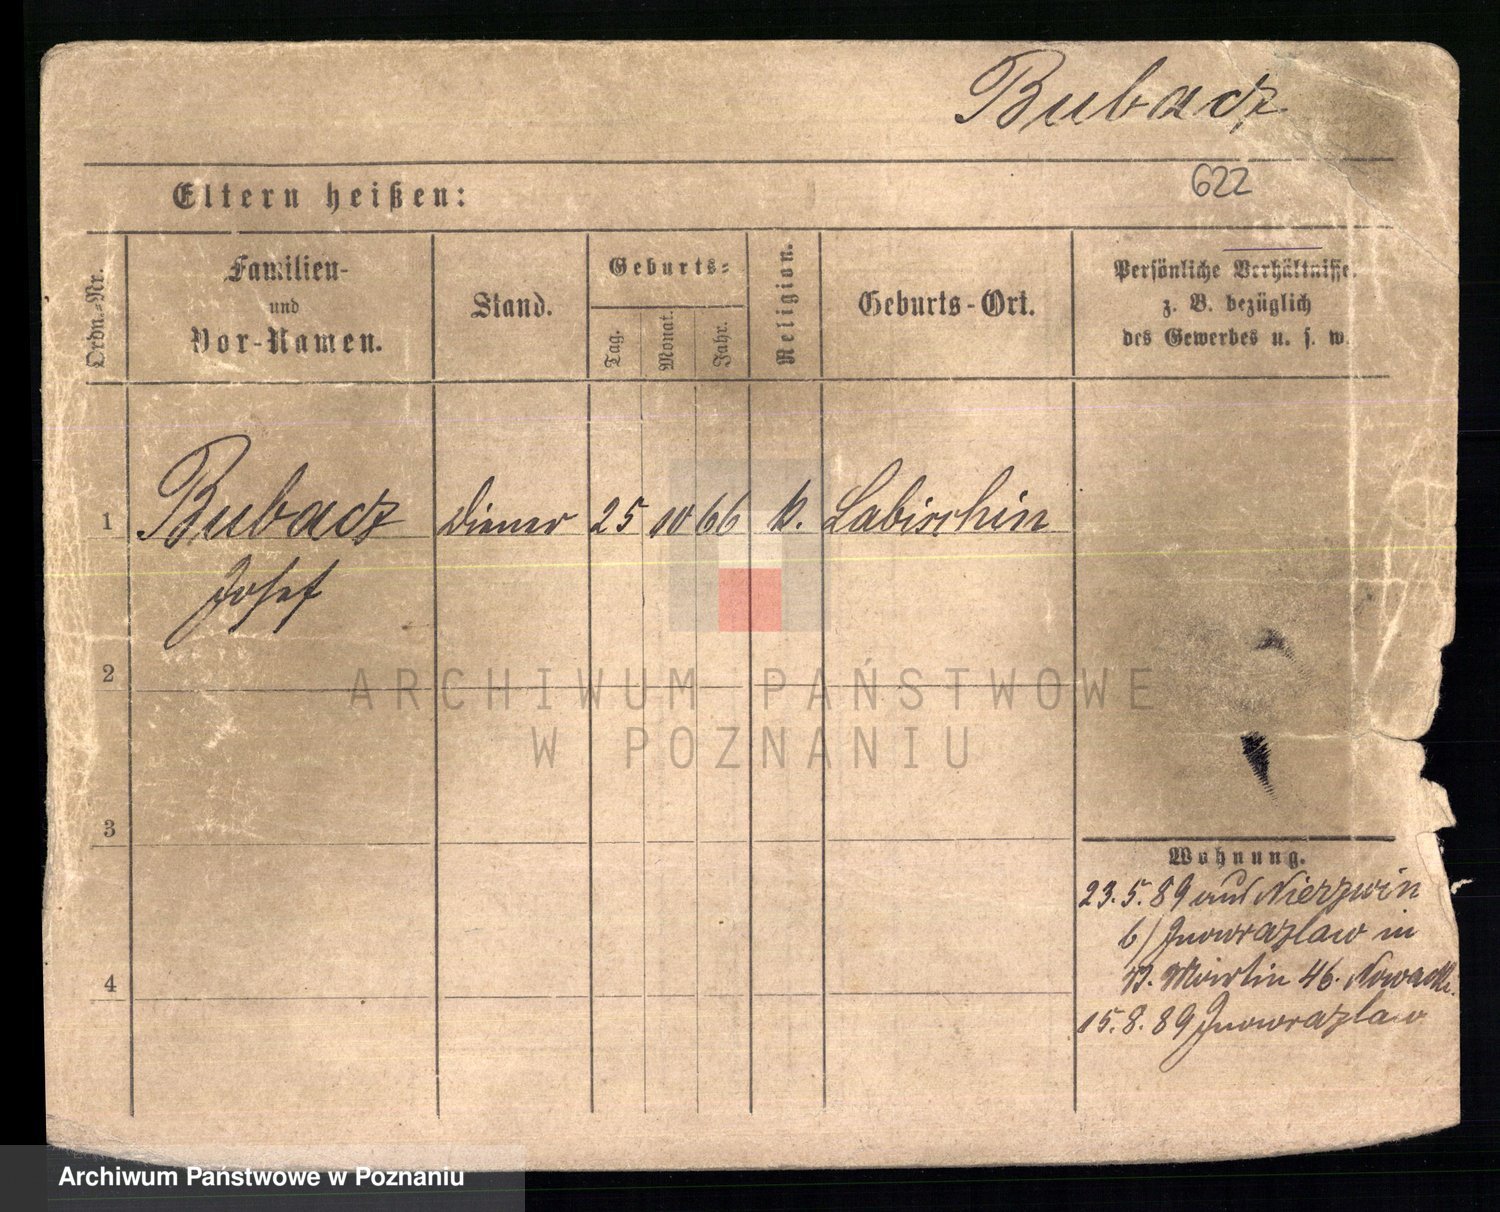 Bubacz
622
Eltern heißen:
Ordn.-Nr.
Familien-
und
Vor-Namen.
Stand.
Geburts-
Tag.
Monat.
Jahr.
Religion.
Geburts-Ort.
Persönliche Verhältnisse,
z. B. bezüglich
des Gewerbes u. s. w.
1 Bubacz Diener 25 10 66 k. Labischin
Josef
2
ARCHIWUM PAŃSTWOWE
W POZNANIU
3
Wohnung.
23.5.89 aus Nierzwin
b/ Inowrazlaw in
St. Martin 46. Nowacki.
4
15.8.89 Inowrazlaw
Archiwum Państwowe w Poznaniu